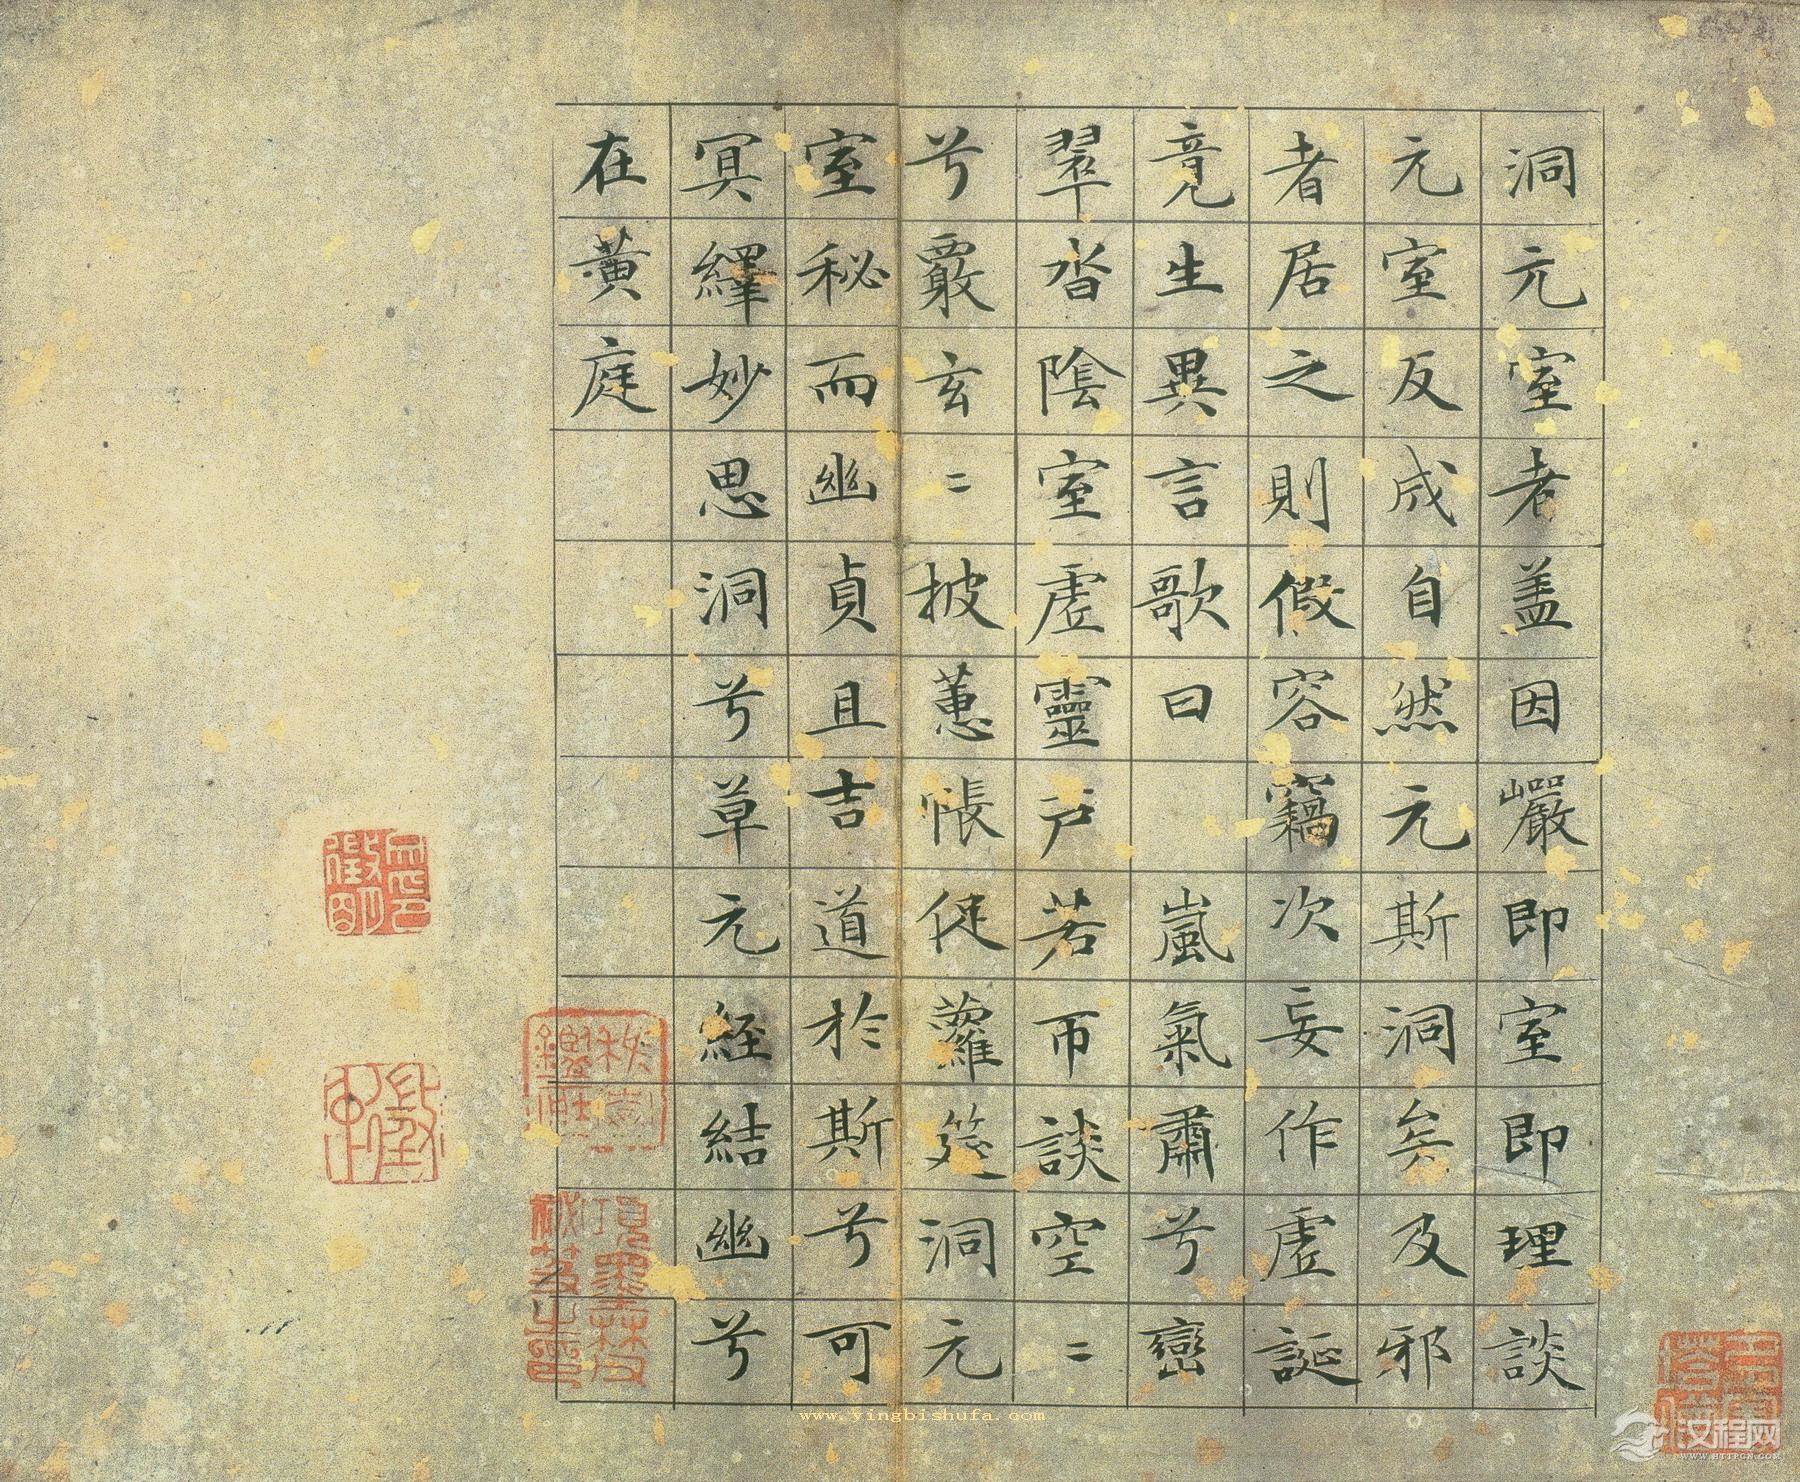 洞元室者盖因巖即室即理談
元室反成自然元斯洞矣及邪
者居之則假容竊次妄作虛誕
竟生異言歌曰　嵐氣肅兮巒
翠沓陰室虛靈戶若帀談空〻
兮覈玄〻披蕙帳促蘿筵洞元
室秘而幽貞且吉道於斯兮可
冥繹妙思洞兮草元經結幽兮
在黃庭
項墨林父
秘笈之印
www.yingbishufa.com
汉程网
WWW.HTTPCN.COM